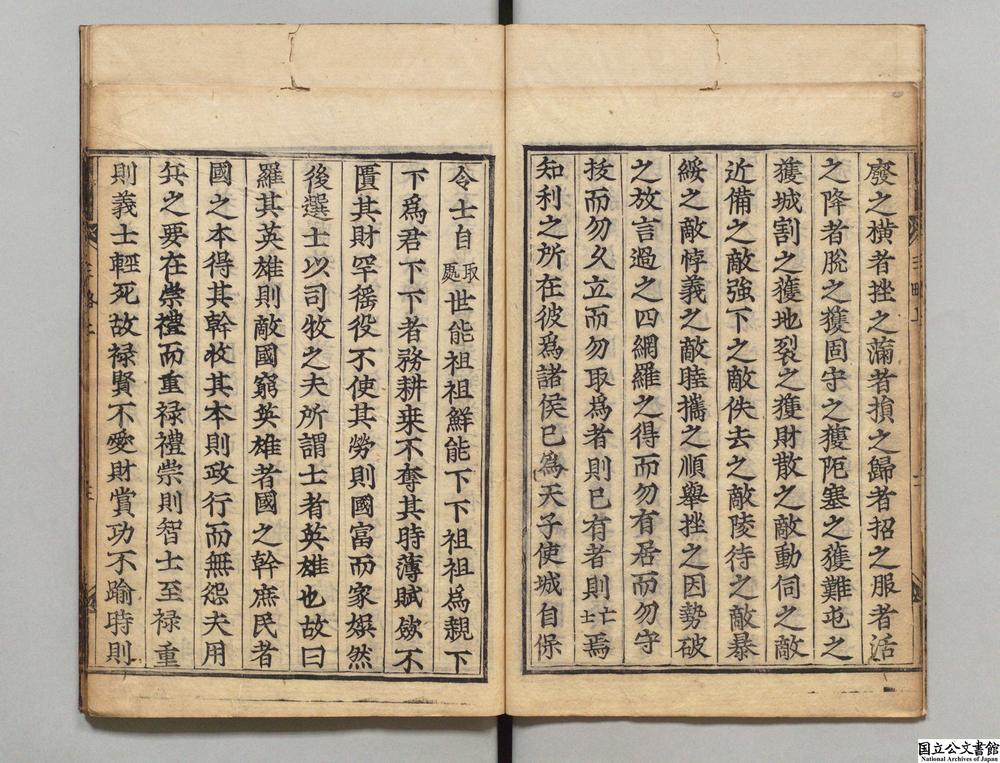 廢之橫者挫之滿者損之歸者招之服者活
之降者脫之獲固守之獲阨塞之獲難屯之
獲城割之獲地裂之獲財散之敵動伺之敵
近備之敵強下之敵佚去之敵陵待之敵暴
綏之敵悖義之敵睦攜之順舉挫之因勢破
之放言過之四網羅之得而勿有居而勿守
拔而勿久立而勿取為者則已有者則士焉
知利之所在彼為諸侯已為天子使城自保
令士自取處世能祖祖鮮能下下祖祖為親下
下為君下下者務耕耒不奪其時薄賦斂不
匱其財罕徭役不使其勞則國富而家娯然
後選士以司牧之夫所謂士者英雄也故曰
羅其英雄則敵國窮英雄者國之幹庶民者
國之本得其幹收其本則政行而無怨夫用
兵之要在崇禮而重祿禮崇則智士至祿重
則義士輕死故祿賢不愛財賞功不踰時則
三略上
国立公文書館
National Archives of Japan